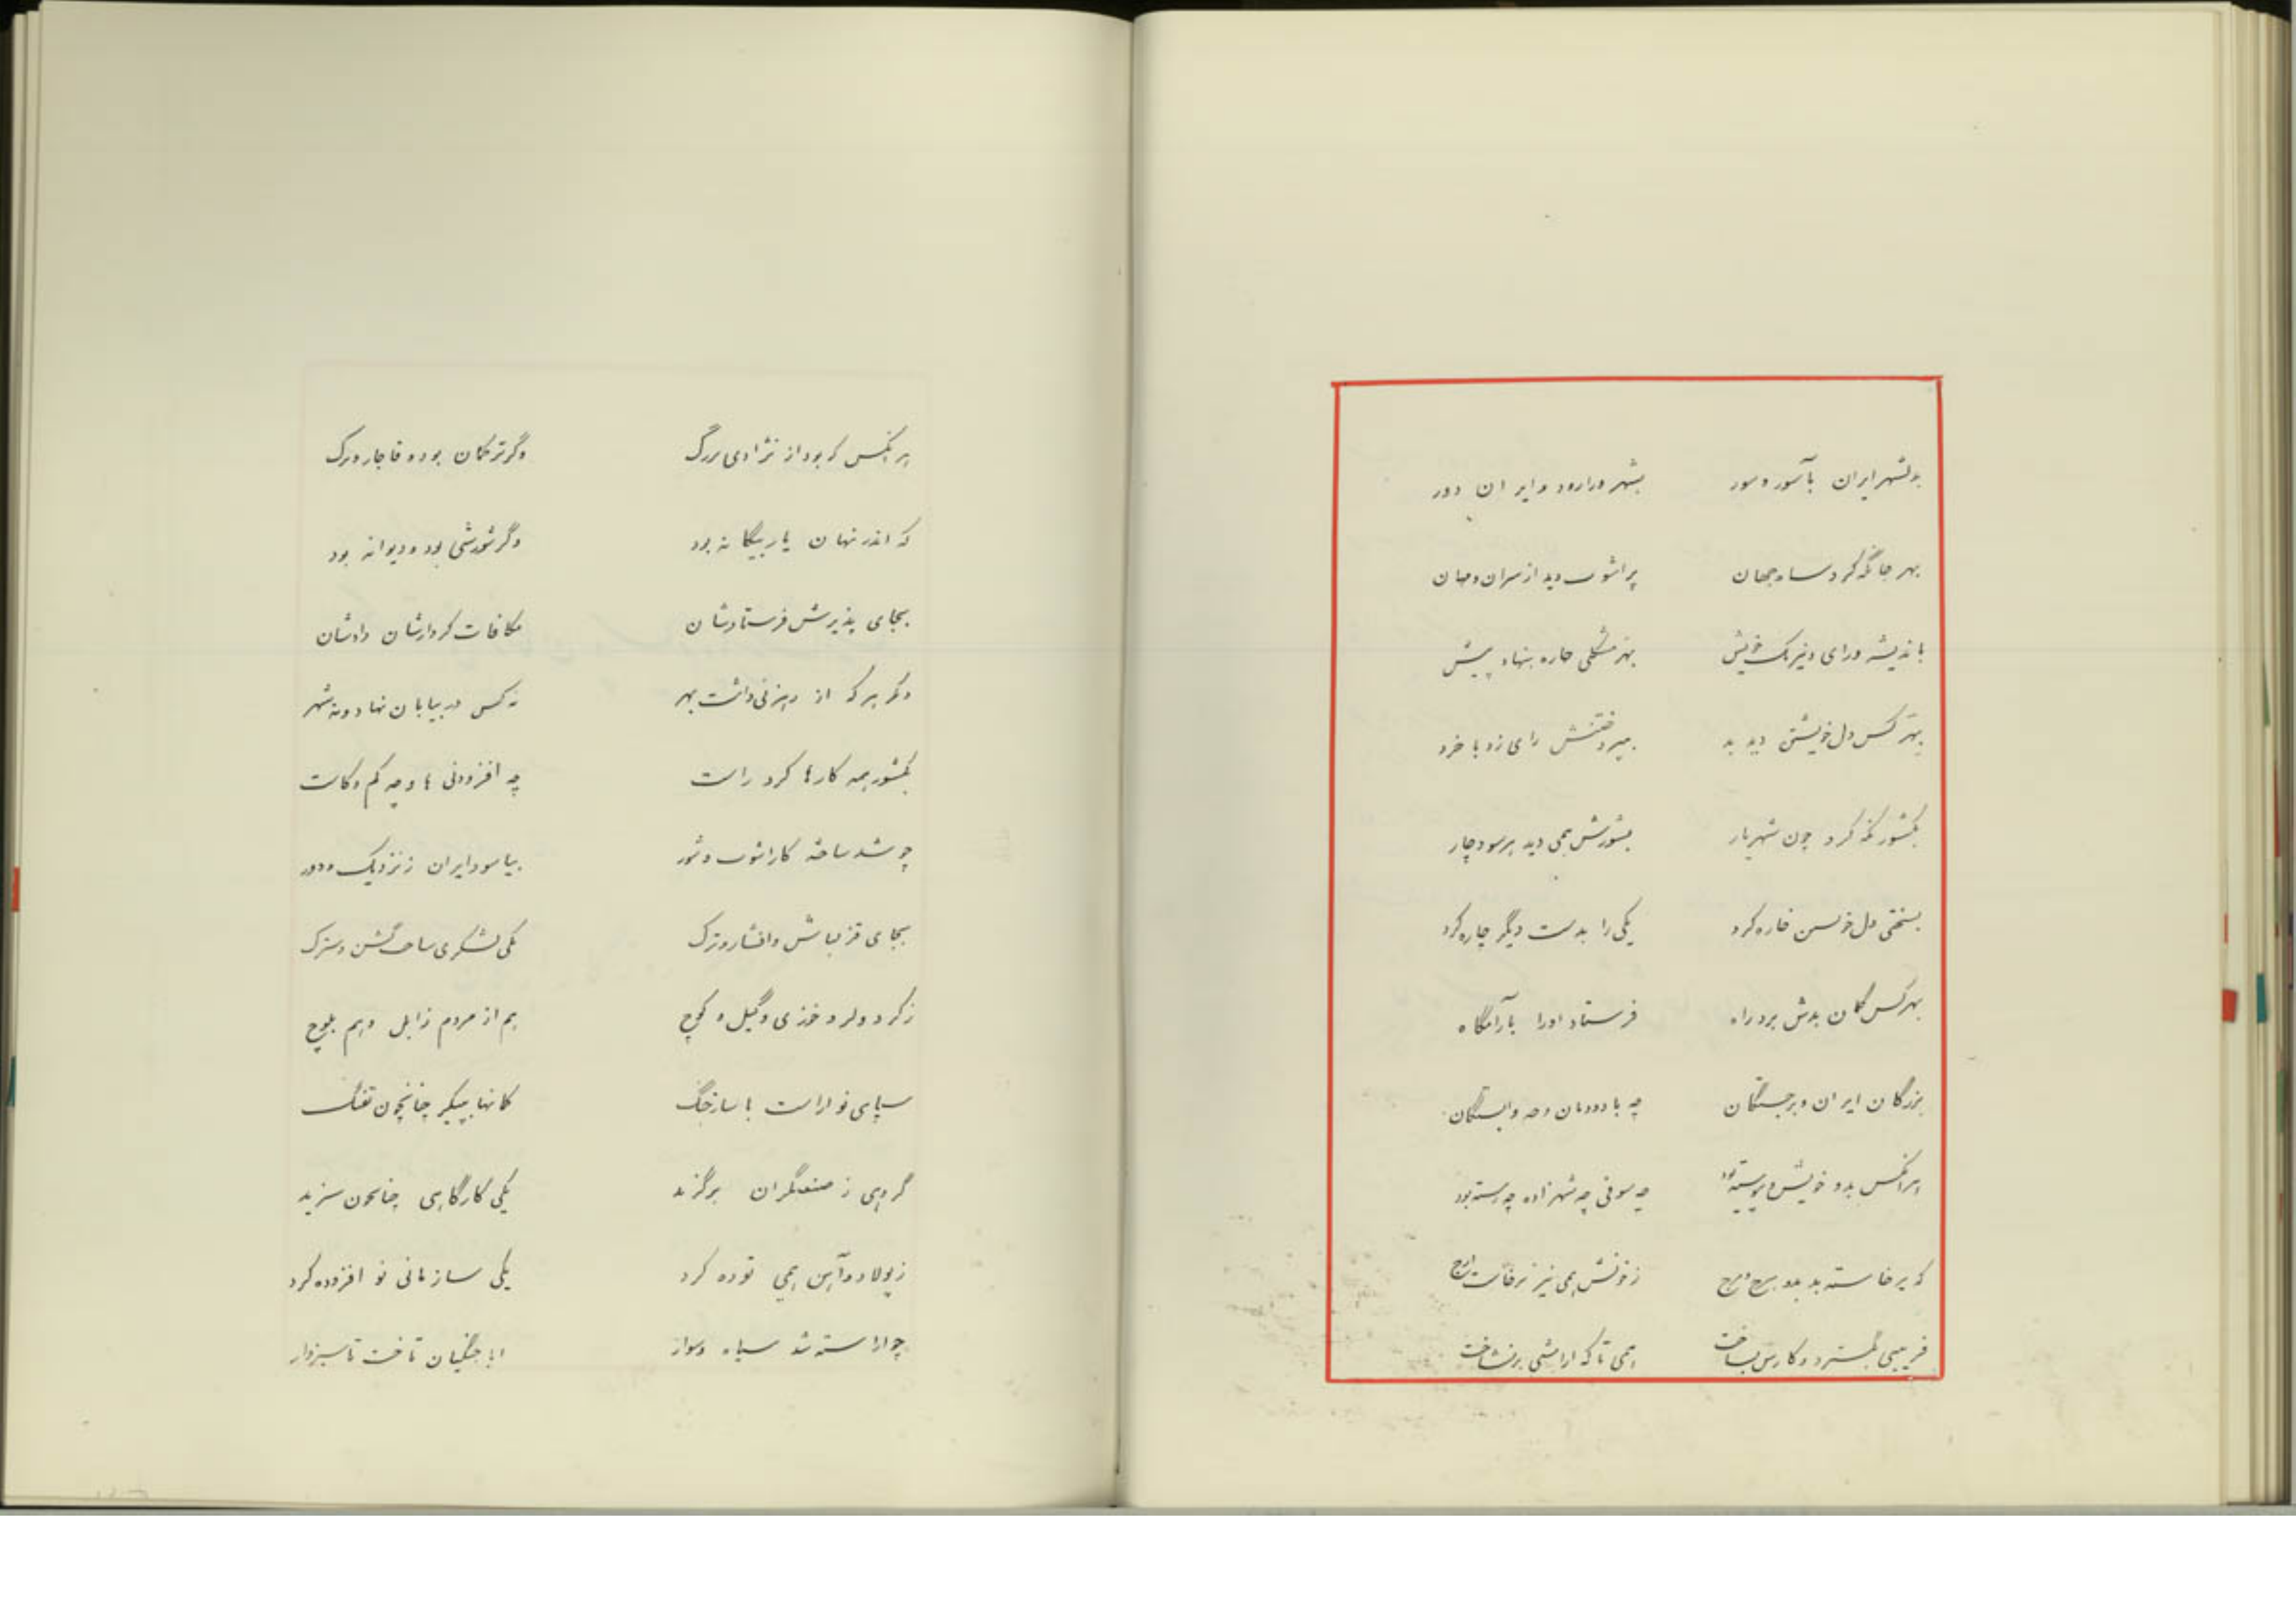 بهر جا نگه کرد شاه جهان    پر آشوب دید از سران و مهان
باندیشه و رای و نیرنگ خویش    بهر مشکلی چاره بنهاد پیش
بهر کس دل خویشتن دید بد    رای زد با خرد
بکشور نگه کرد چون شهریار    بشورش همی دید هر سو دچار
بسختی دل خویش خاره کرد    یکی را بدست دیگر چاره کرد
بهر کس گمان بدش برد راه    فرستاد او را بآرامگاه
بزرگان ایران و برجستگان    چه با دودمان و چه وابستگان
هر آنکس بدو خویش و پیوسته بود    چه صوفی چه شهزاده چه رسته بود
که برخاسته بد    ز خونش همی نیز برخاست اوج
فریبی بگسترد و کارش بساخت    همی تا که آرامشی برفشاخت
هر آنکس که بود از نژادی بزرگ    وگر ترکمان بود و قاجار و ترک
که اندر نهان یار بیگانه بود    وگر شورشی بود و دیوانه بود
بجای پذیرش فرستادشان    مکافات کردارشان دادشان
دگر هر که از رهزنی داشت بهر    نه کس در بیابان نهاد و نه شهر
بکشور همه کارها کرد راست    چه افزودنی ها و چه کم و کاست
چو شد ساخته کار آشوب و شور    بیاسود ایران ز نزدیک و دور
بجای قزلباش و افشار و ترک    یکی لشکری ساخت گشن و سترک
ز کرد و لر و خزی و گیل و کوچ    هم از مردم زابل و هم بلوچ
سپاهی نو آراست با ساز جنگ    کمانها بپیکر چنانچون تفنگ
گروهی ز صنعتگران برگزید    یکی کارگاهی چنانچون سزید
ز پولاد و آهن همی توده کرد    یکی سازمانی نو افزوده کرد
چو آراسته شد سپاه و سوار    ابا جنگیان تاخت تا سبزوار